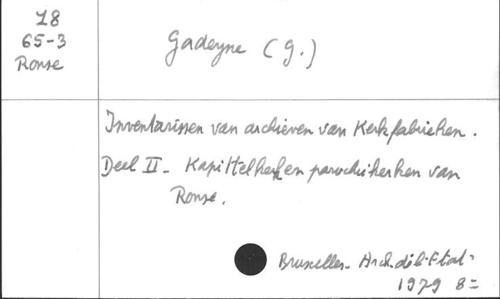 28
65-3
Ronse
Gadeyne (G.)
Inventarissen van archieven van Kerkfabrieken.
Deel II. Kapittelkerk en parochikerken van
Ronse.
Bruxelles. Arch. de l'Etat.
1979 8=